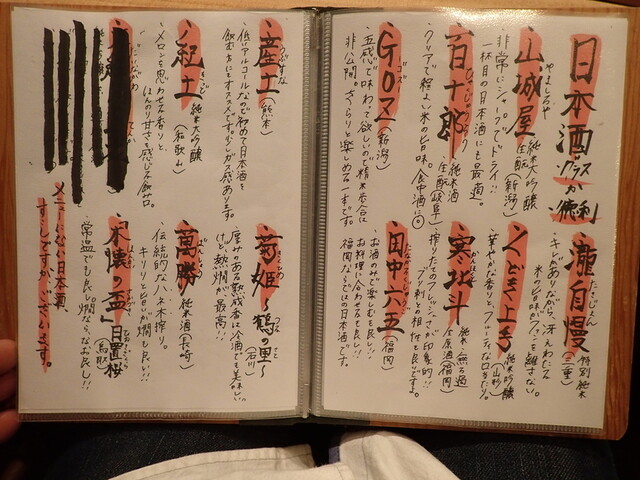 日本酒 グラスか徳利
やましろや
山城屋 純米大吟醸 (新潟)
非常にシャープでドライ!!
一杯目の日本酒にも最適。
ひゃくじゅうろう
百十郎 純米酒 (岐阜)
クリアで程よい米の旨味。食中酒に◎
ゴズ
GOZ (新潟)
五感で味わって欲しいので精米歩合は
非公開。さらりと楽しめる一本です。
瀧自慢 特別純米 (三重)
キレがありながら、冴えわたる
米の旨味がファンを離さない。
くどき上手 純米吟醸 (山形)
華やかな香りとフルーティな口あたり。
寒北斗 純米 無ろ過生原酒 (福岡)
搾りたてのフレッシュさが印象的!!
ブリ刺しとの相性も良いですよ。
田中六五 (福岡)
お酒のみで楽しむも良し!!
お料理に合わせるも良し!!
福岡ならではの日本酒です。
うぶすな
産土 (熊本)
低アルコールなので初めて日本酒を
飲む方にもオススメです。少しガス感あります。
紀土 純米大吟醸 (和歌山)
メロンを思わせる香りと
ほんのり甘さを感じる飲み口。
菊姫〜鶴の里〜 (石川)
厚みのある熟成香は冷酒でも美味しい
けど、熱燗が最高!!
萬勝 純米酒 (長崎)
伝統的なハネ木搾り。
キリッと旨い、燗も良い!!
日置桜 (鳥取)
常温でも良し。燗なら、なお良し!!
メニューにない日本酒
すこしですがございます。